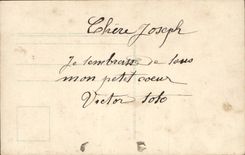 Chère Joseph
Je tembrasse de tous
mon petit coeur
Victor toto